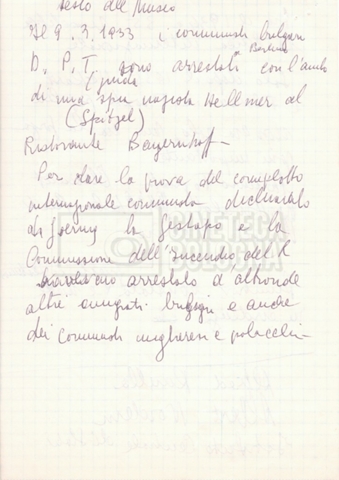 testo del Museo
Il 9.3.1933 i comunisti bulgari
Berlino
D, P, T, sono arrestati con l'aiuto
(guida
di una spia nazista Hellmer al
(Spitzel)
Ristorante Bayernhoff –
Per dare la prova del complotto
internazionale comunista dichiarato
da Goering la gestapo e la
Commissione dell'incendio del R
avevano arrestato d'altronde
altri emigrati bulgari e anche
dei Comunisti ungheresi e polacchi –
CINETECA
BOLOGNA